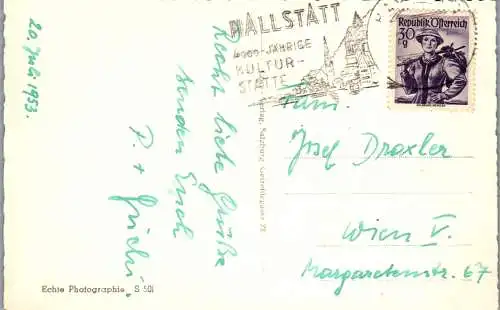 20. Juli 1953.
Recht liebe Grüße
senden Euch
P. + Grichi.
HALLSTATT
4000-JÄHRIGE
KULTUR-
STÄTTE
Republik Österreich
30
g
Fam.
Josef Draxler
Wien V.
Margaretenstr. 67
Verlag, Salzburg
Echte Photographie S 501